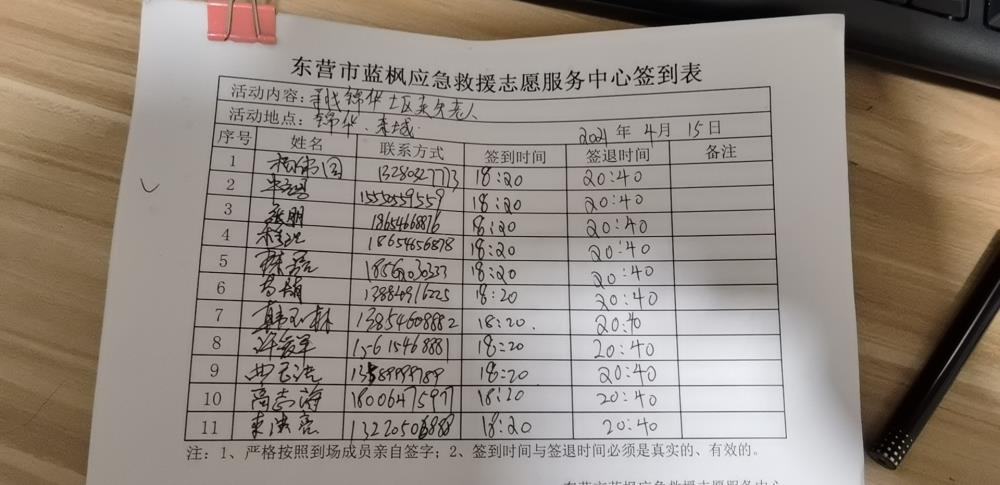 东营市蓝枫应急救援志愿服务中心签到表
活动内容：寻找锦华社区走失老人
活动地点：锦华.东城. 2021年4月15日
序号 姓名 联系方式 签到时间 签退时间 备注
1 13280327773 18:20 20:40
2 15550559559 18:20 20:40
3 18654668876 18:20 20:40
4 18654656878 18:20 20:40
5 18562030333 18:20 20:40
6 13884916225 18:20 20:40
7 韩玉林 13854608882 18:20. 20:40
8 许爱军 15615468881 18:20 20:40
9 13589999789 18:20 20:40
10 高志海 18006475977 18:20 20:40
11 18:20 20:40
注：1、严格按照到场成员亲自签字；2、签到时间与签退时间必须是真实的、有效的。
东营市蓝枫应急救援志愿服务中心